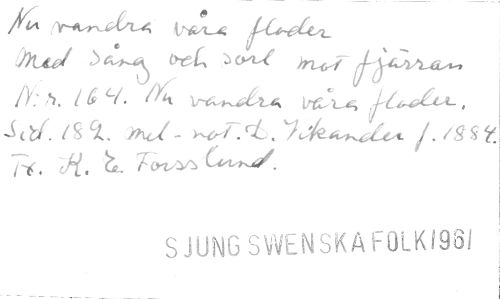 Nu vandra våra floder
Med sång och sorl mot fjärran
N:r. 164. Nu vandra våra floder.
Sid. 182. mel-not. D. Vikander f. 1884.
Tx. K. E. Forsslund.
SJUNG SWENSKA FOLK 1961